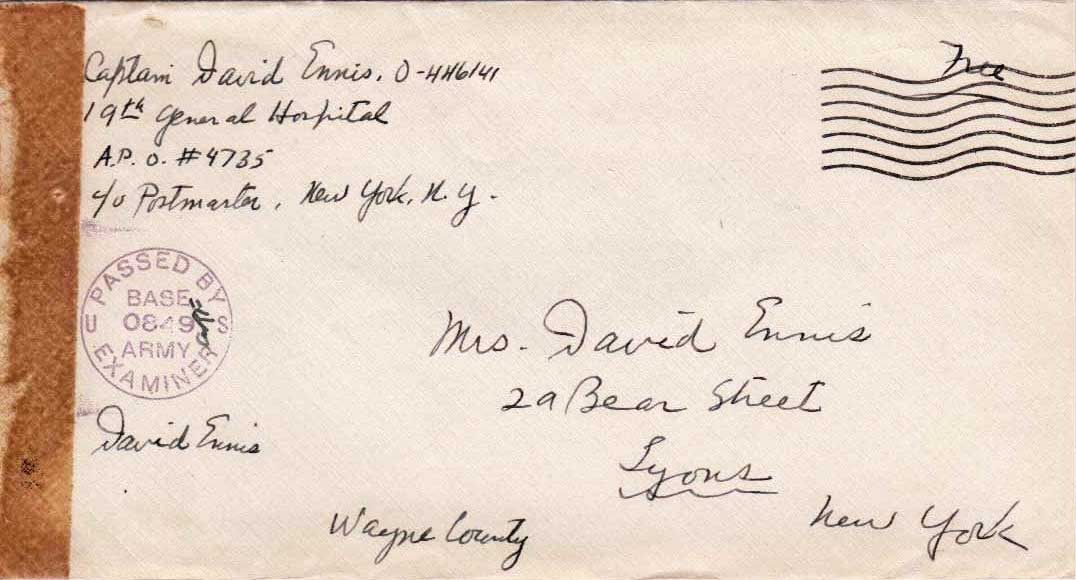 Captain David Ennis, O-446141
19th General Hospital
A.P.O. #4735
c/o Postmaster, New York, N.Y.
Free
PASSED BY
BASE
U 0849 S
ARMY
EXAMINER
Mrs. David Ennis
2a Bear Street
Lyons
New York
David Ennis
Wayne County